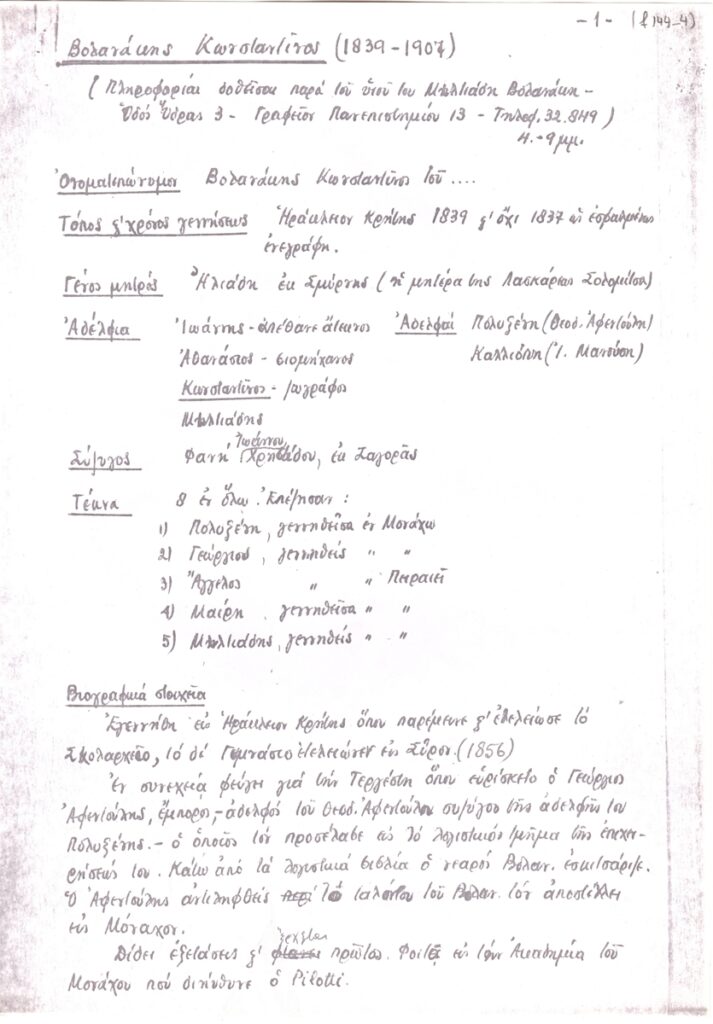 -1- (f 144-4)
Βολανάκης Κωνσταντῖνος (1839-1907)
(Πληροφορίαι δοθεῖσαι παρά τοῦ υἱοῦ του Μιλτιάδη Βολανάκη -
Ὁδός Ὕδρας 3 - Γραφεῖον Πανεπιστημίου 13 - Τηλεφ. 32.849)
4.-9 μμ.
Ὀνοματεπώνυμον Βολανάκης Κωνσταντῖνος τοῦ ....
Τόπος & χρόνος γεννήσεως Ἡράκλειον Κρήτης 1839 & ὄχι 1837 ὡς ἐσφαλμένως
ἐνεγράφη.
Γένος μητρός Ἠλιάδη ἐκ Σμύρνης (ἡ μητέρα της Λασκάρεως Σολομῆτσα)
Ἀδέλφια Ἰωάννης - ἀπέθανε ἄτεκνος Ἀδελφαί Πολυξένη (Θεοδ. Ἀφεντούλη)
Ἀθανάσιος - βιομήχανος Καλλιόπη (Ἰ. Μανούση)
Κωνσταντῖνος - ζωγράφος
Μιλτιάδης
Σύζυγος Φανή Ἰωάννου Χρηστίδου, ἐκ Ζαγορᾶς
Τέκνα 8 ἐν ὅλῳ. Ἐπέζησαν:
1) Πολυξένη, γεννηθεῖσα ἐν Μονάχῳ
2) Γεώργιος, γεννηθείς " "
3) Ἄγγελος " " Πειραιεῖ
4) Μαίρη, γεννηθεῖσα " "
5) Μιλτιάδης, γεννηθείς " "
Βιογραφικά στοιχεῖα
Ἐγεννήθη εἰς Ἡράκλειον Κρήτης ὅπου παρέμεινε & ἐτελείωσε τό
Σχολαρχεῖο, τό δέ Γυμνάσιο ἐτελείωνεν εἰς Σῦρον. (1856)
Ἐν συνεχείᾳ φεύγει γιά τήν Τεργέστη ὅπου εὑρίσκετο ὁ Γεώργιος
Ἀφεντούλης, ἔμπορος, - ἀδελφός τοῦ Θεοδ. Ἀφεντούλου συζύγου τῆς ἀδελφῆς του
Πολυξένης. - ὁ ὁποῖος τόν προσέλαβε εἰς τό λογιστικό τμῆμα τῆς ἐπιχει-
ρήσεώς του. Κάτω ἀπό τά λογιστικά βιβλία ὁ νεαρός Βολαν. ἐσκιτσάριζε.
Ὁ Ἀφεντούλης ἀντιληφθείς περί τό ταλέντου τοῦ Βολαν. τόν ἀποστέλλει
εἰς Μόναχον.
Δίδει ἐξετάσεις & ἔρχεται πρῶτος. Φοιτᾷ εἰς τήν Ἀκαδημία τοῦ
Μονάχου πού διηύθυνε ὁ Pilotti.